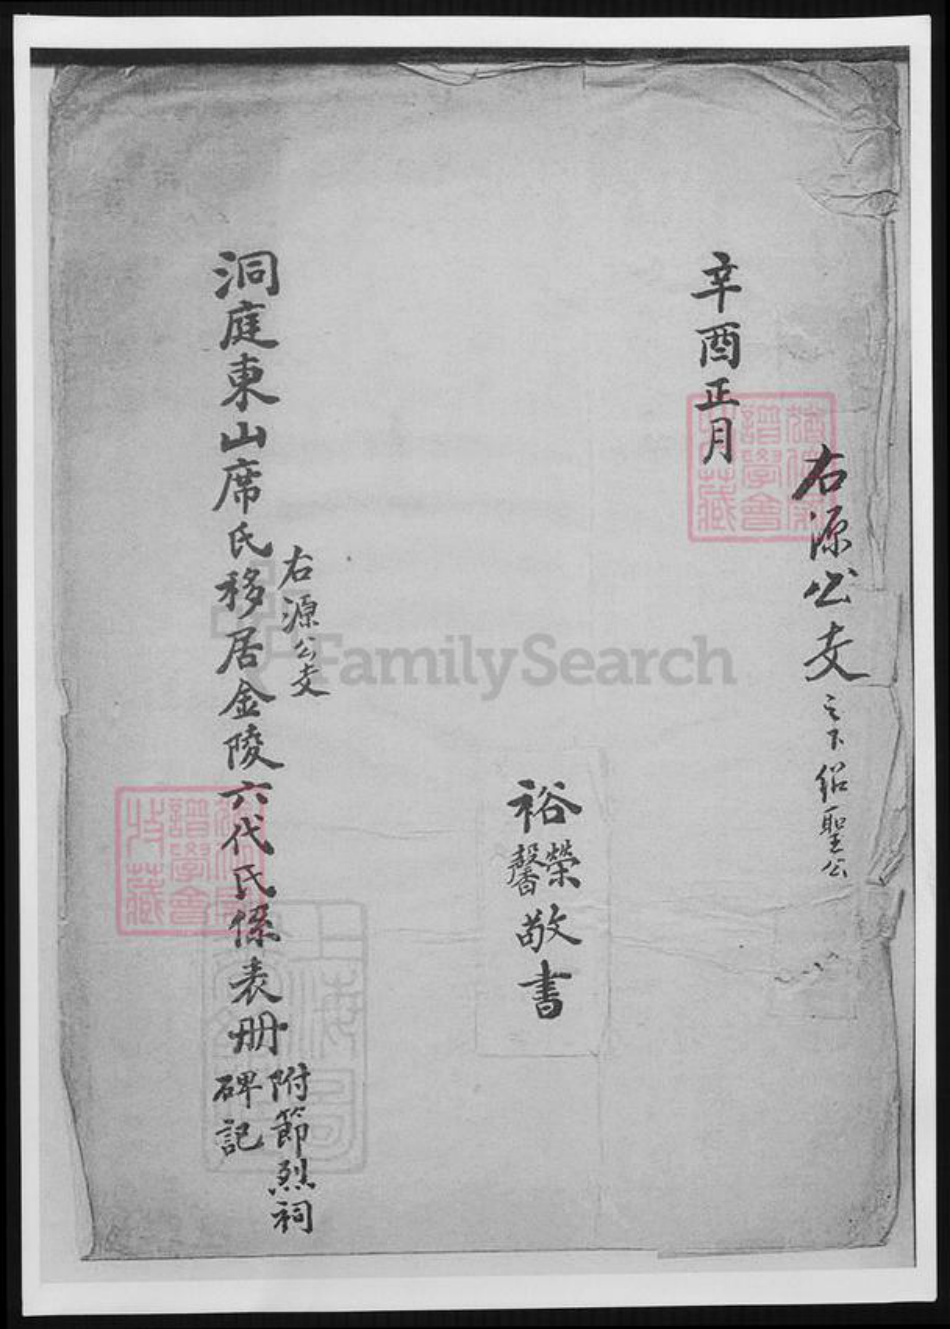 右源公支之下紹聖公
辛酉正月
裕榮馨敬書
右源公支
洞庭東山席氏移居金陵六代氏係表册
附節烈祠
碑記
FamilySearch
譜學會
收藏
譜學會
收藏
上海圖